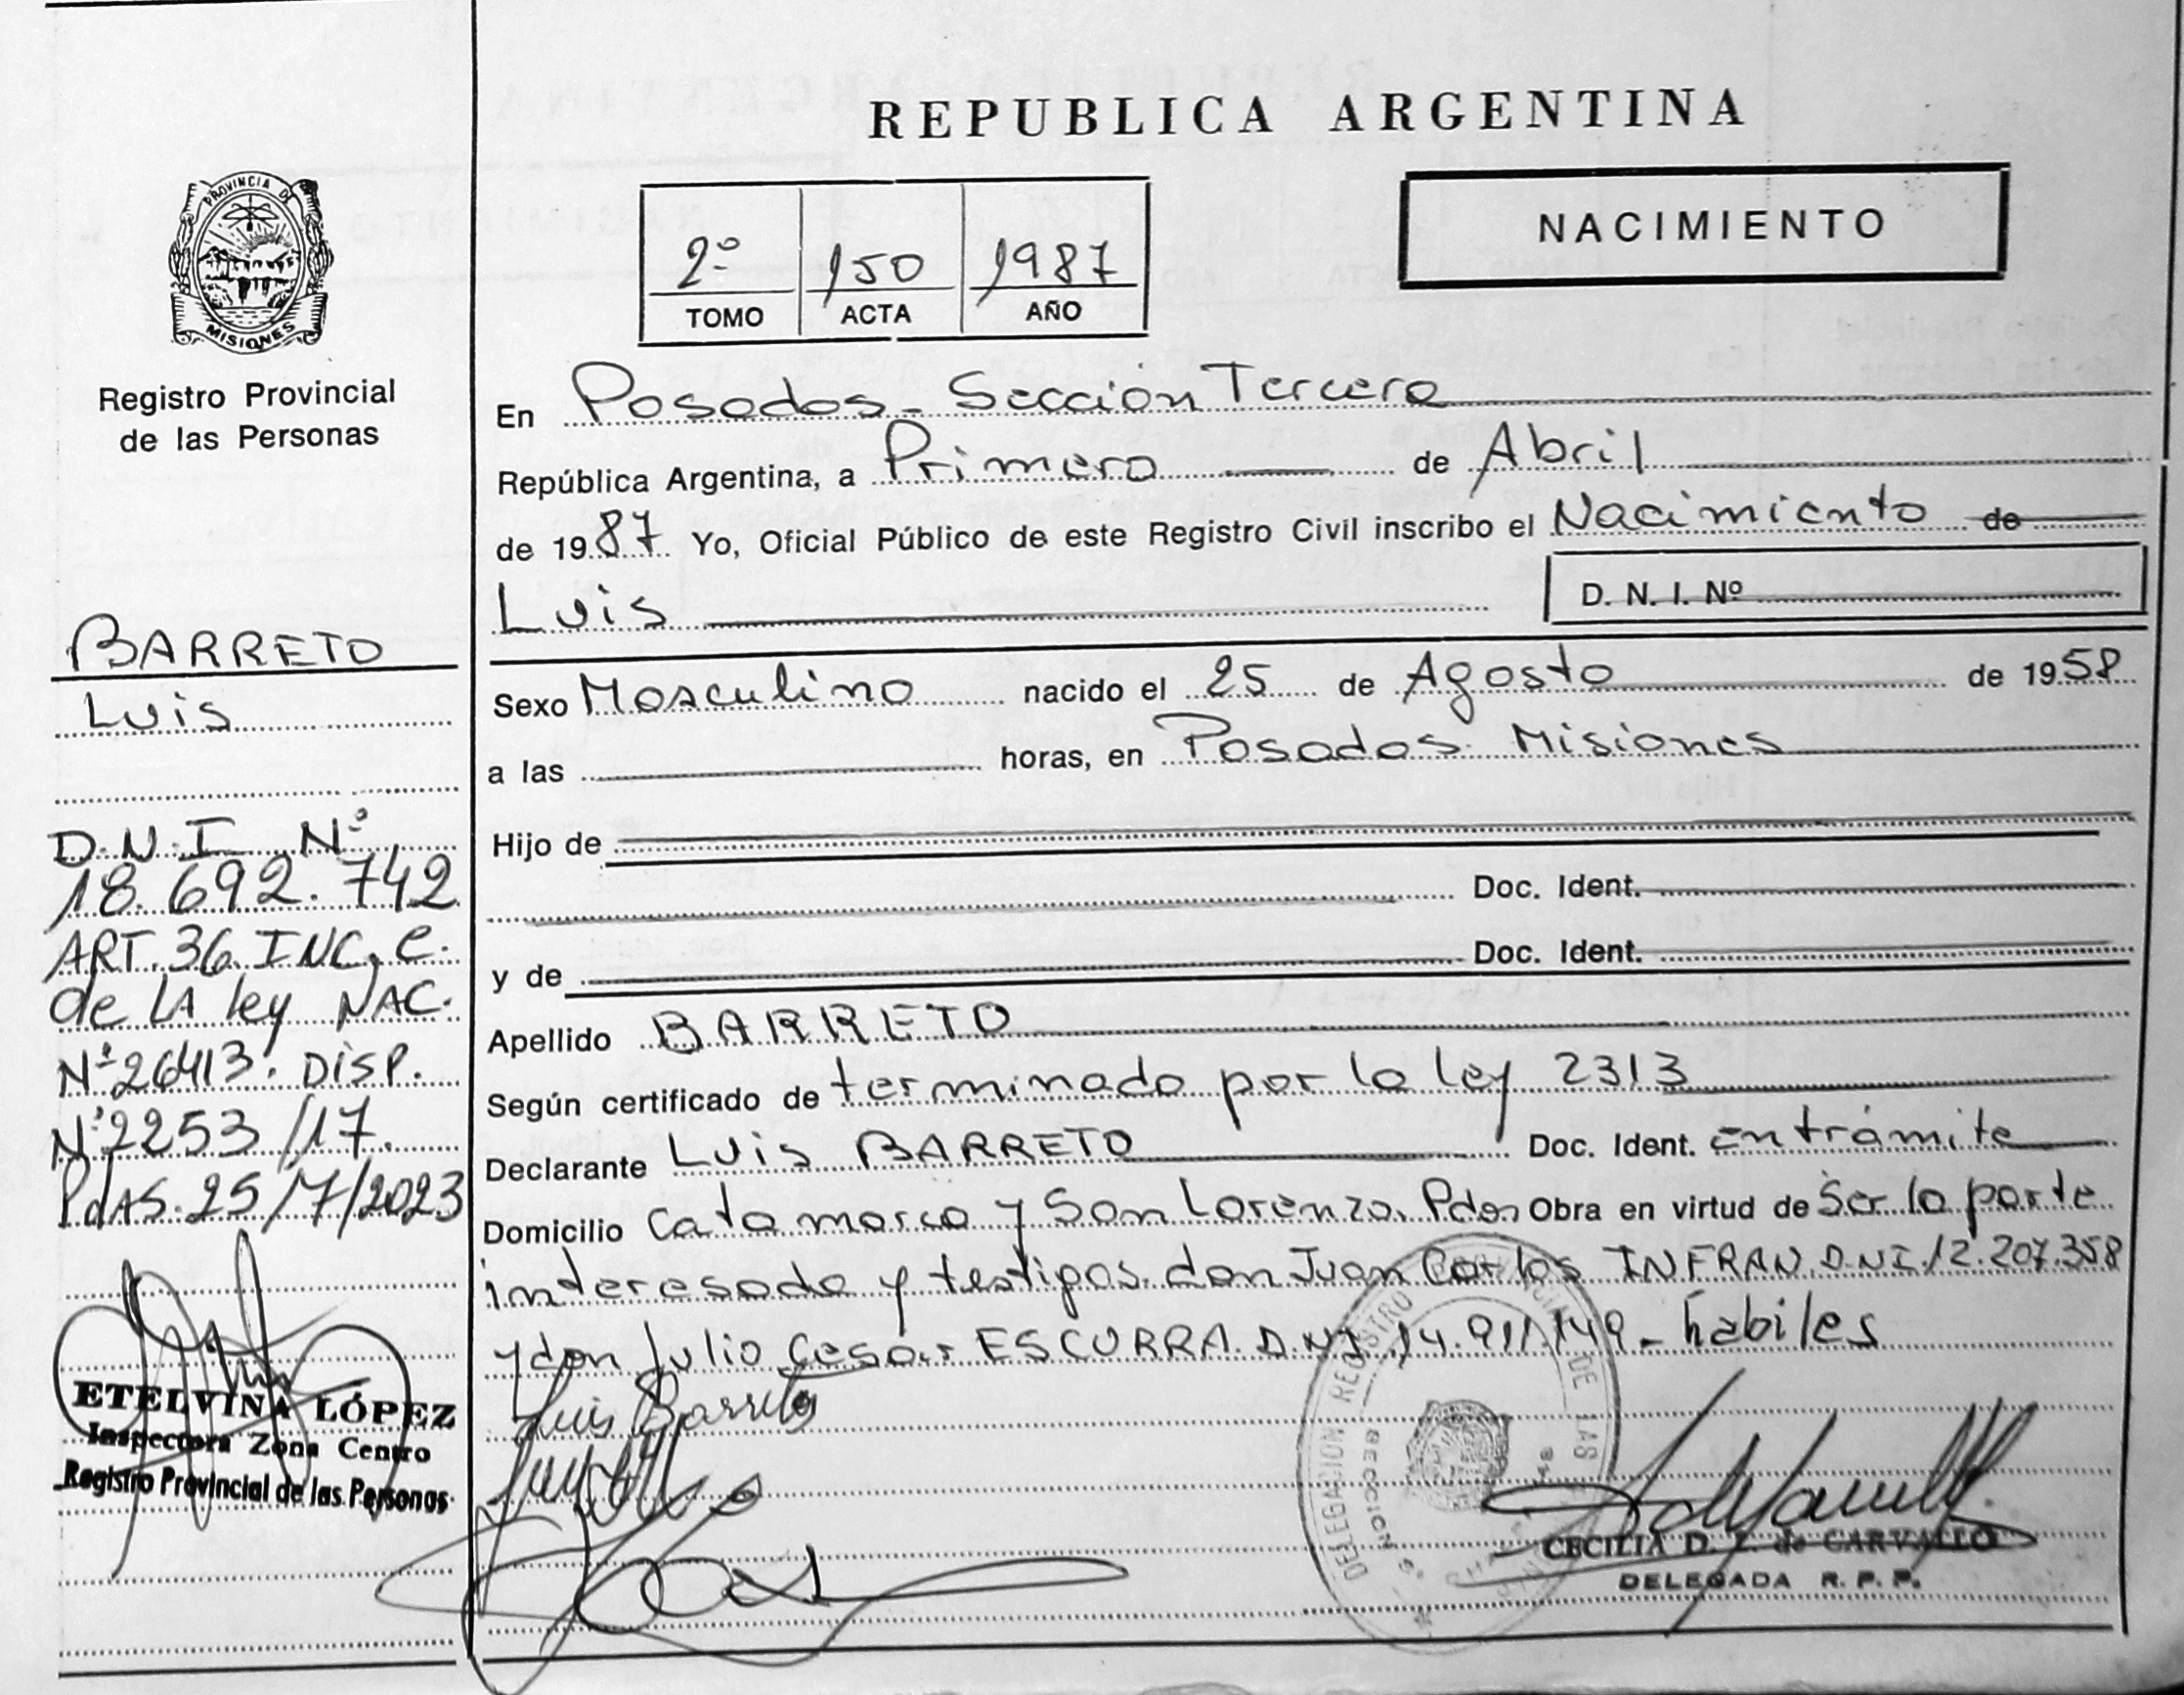 REPUBLICA ARGENTINA
PROVINCIA DE MISIONES
Registro Provincial
de las Personas
2º 150 1987
TOMO ACTA AÑO
NACIMIENTO
En Posadas - Sección Tercera
República Argentina, a Primero de Abril
de 1987 Yo, Oficial Público de este Registro Civil inscribo el Nacimiento de
Luis D. N. I. Nº
Sexo Masculino nacido el 25 de Agosto de 1958
a las horas, en Posadas Misiones
Hijo de
Doc. Ident.
y de Doc. Ident.
Apellido BARRETO
Según certificado de terminado por la ley 2313
Declarante Luis BARRETO Doc. Ident. en trámite
Domicilio Catamarca y San Lorenzo. Pdas Obra en virtud de Ser la parte
interesada y testigos don Juan Carlos INFRAN D.N.I. 12.207.358
y don Julio Cesar ESCURRA. D.N.I. 14.911.149 - habiles
Luis Barreto
BARRETO
Luis
D.N.I. Nº
18.692.742
ART. 36 INC. C.
de LA ley NAC.
Nº 26413. DISP.
Nº 2253/17.
PdAS. 25/7/2023
ETELVINA LÓPEZ
Inspectora Zona Centro
Registro Provincial de las Personas
DELEGACION REGISTRO PROVINCIAL DE LAS
SECCION 3ª
CECILIA D. de CARVALLO
DELEGADA R. P. P.